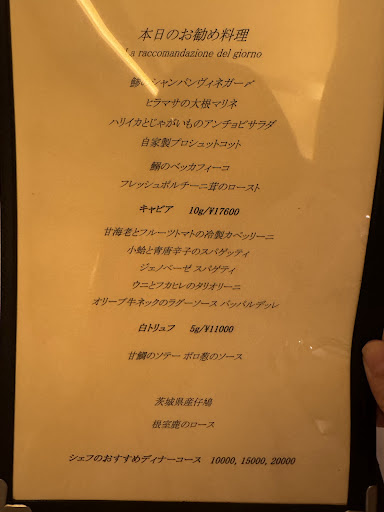 本日のお勧め料理
La raccomandazione del giorno
鯵のシャンパンヴィネガー〆
ヒラマサの大根マリネ
ハリイカとじゃがいものアンチョビサラダ
自家製プロシュットコット
鰯のベッカフィーコ
フレッシュポルチーニ茸のロースト
キャビア 10g/¥17600
甘海老とフルーツトマトの冷製カペッリーニ
小蛤と青唐辛子のスパゲッティ
ジェノベーゼ スパゲティ
ウニとフカヒレのタリオリーニ
オリーブ牛ネックのラグーソース パッパルデッレ
白トリュフ 5g/¥11000
甘鯛のソテー ポロ葱のソース
茨城県産仔鳩
根室鹿のロース
シェフのおすすめディナーコース 10000, 15000, 20000